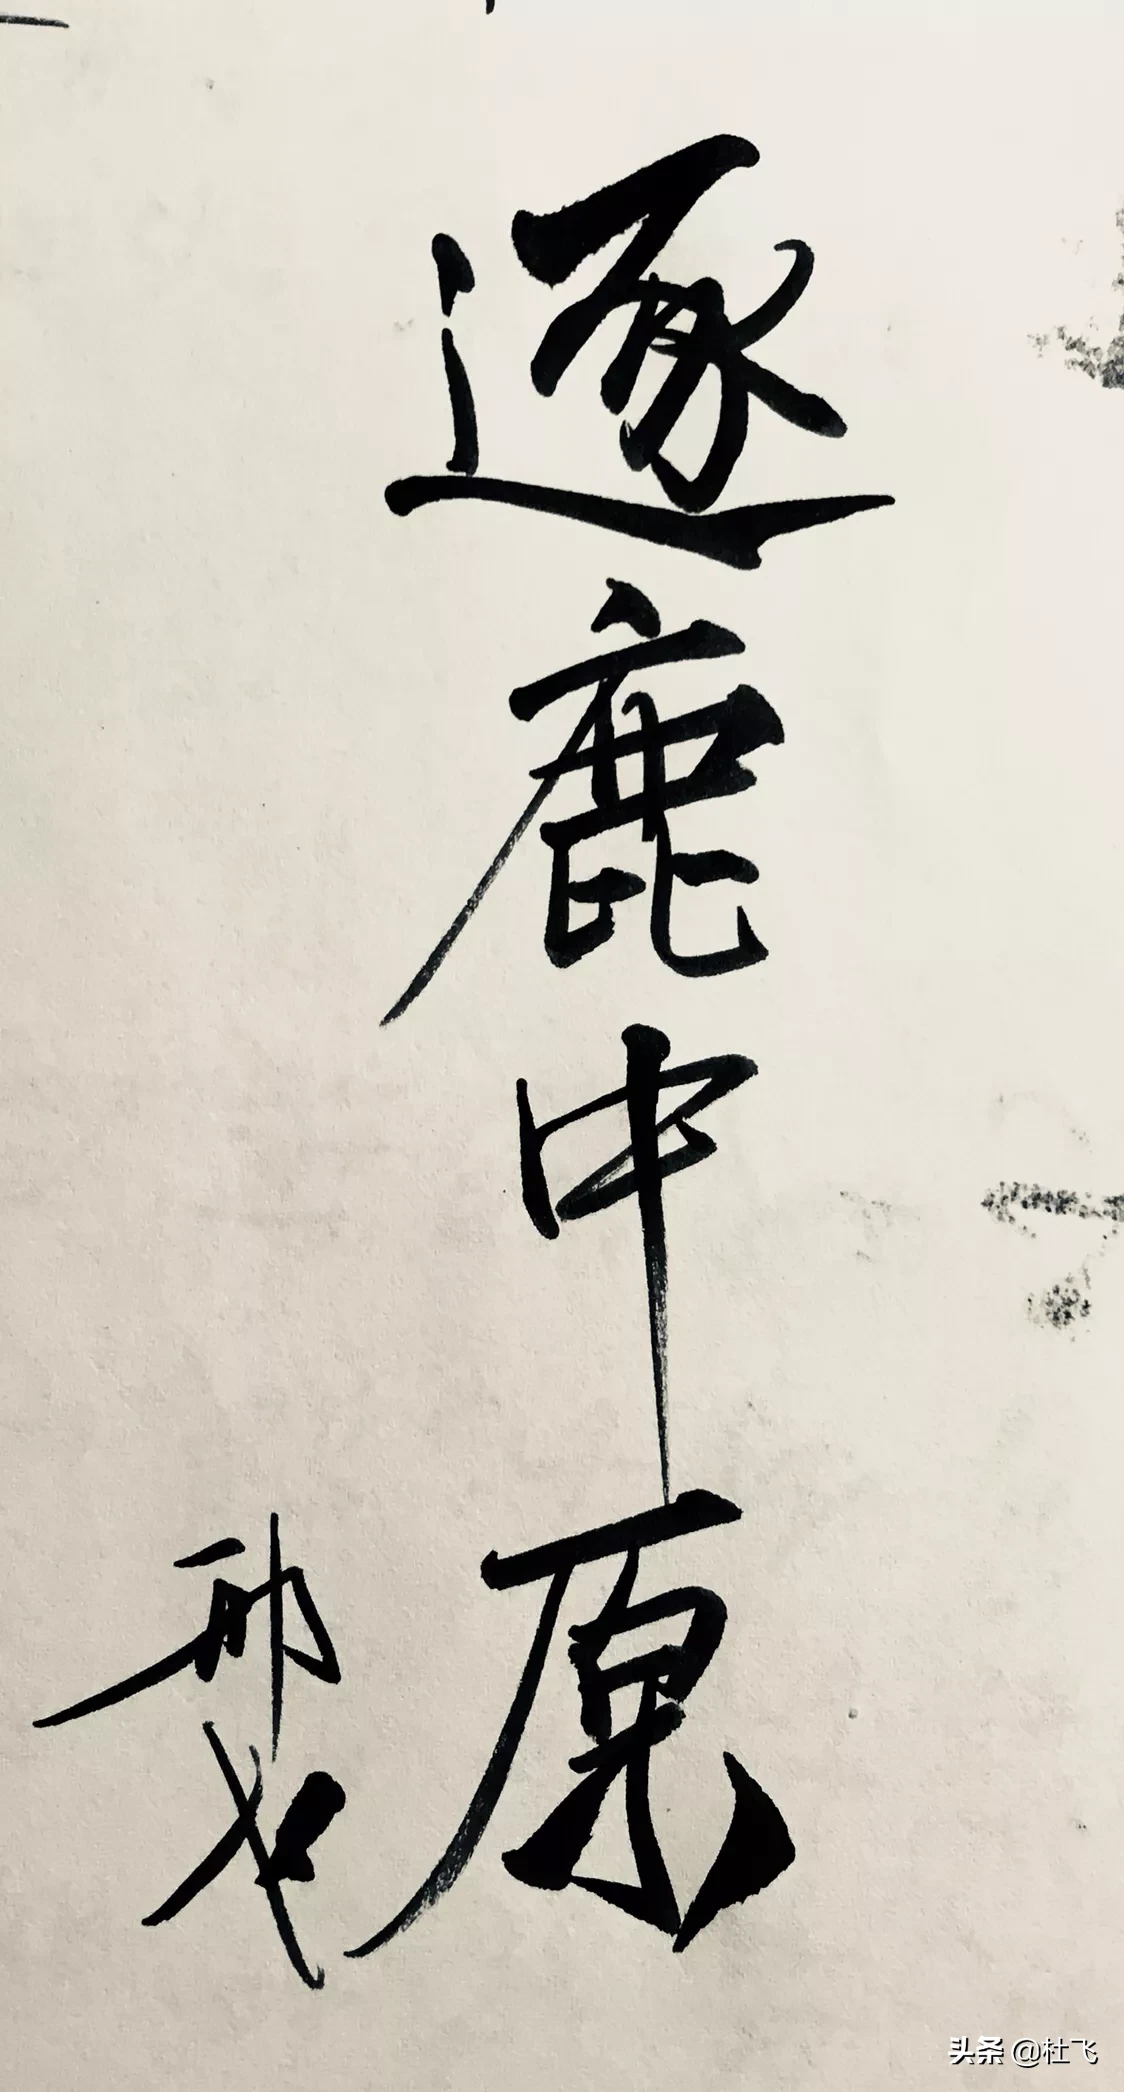 逐鹿中原
头条 @杜飞